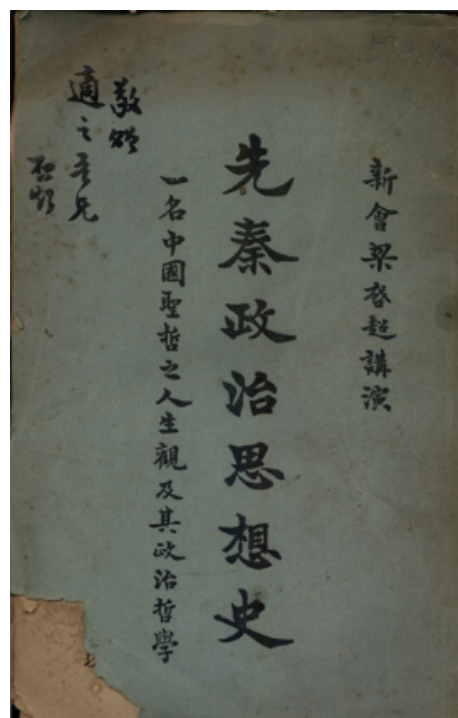 新會梁啓超講演
先秦政治思想史
一名中國聖哲之人生觀及其政治哲學
敬贈
適之吾兄
啓超